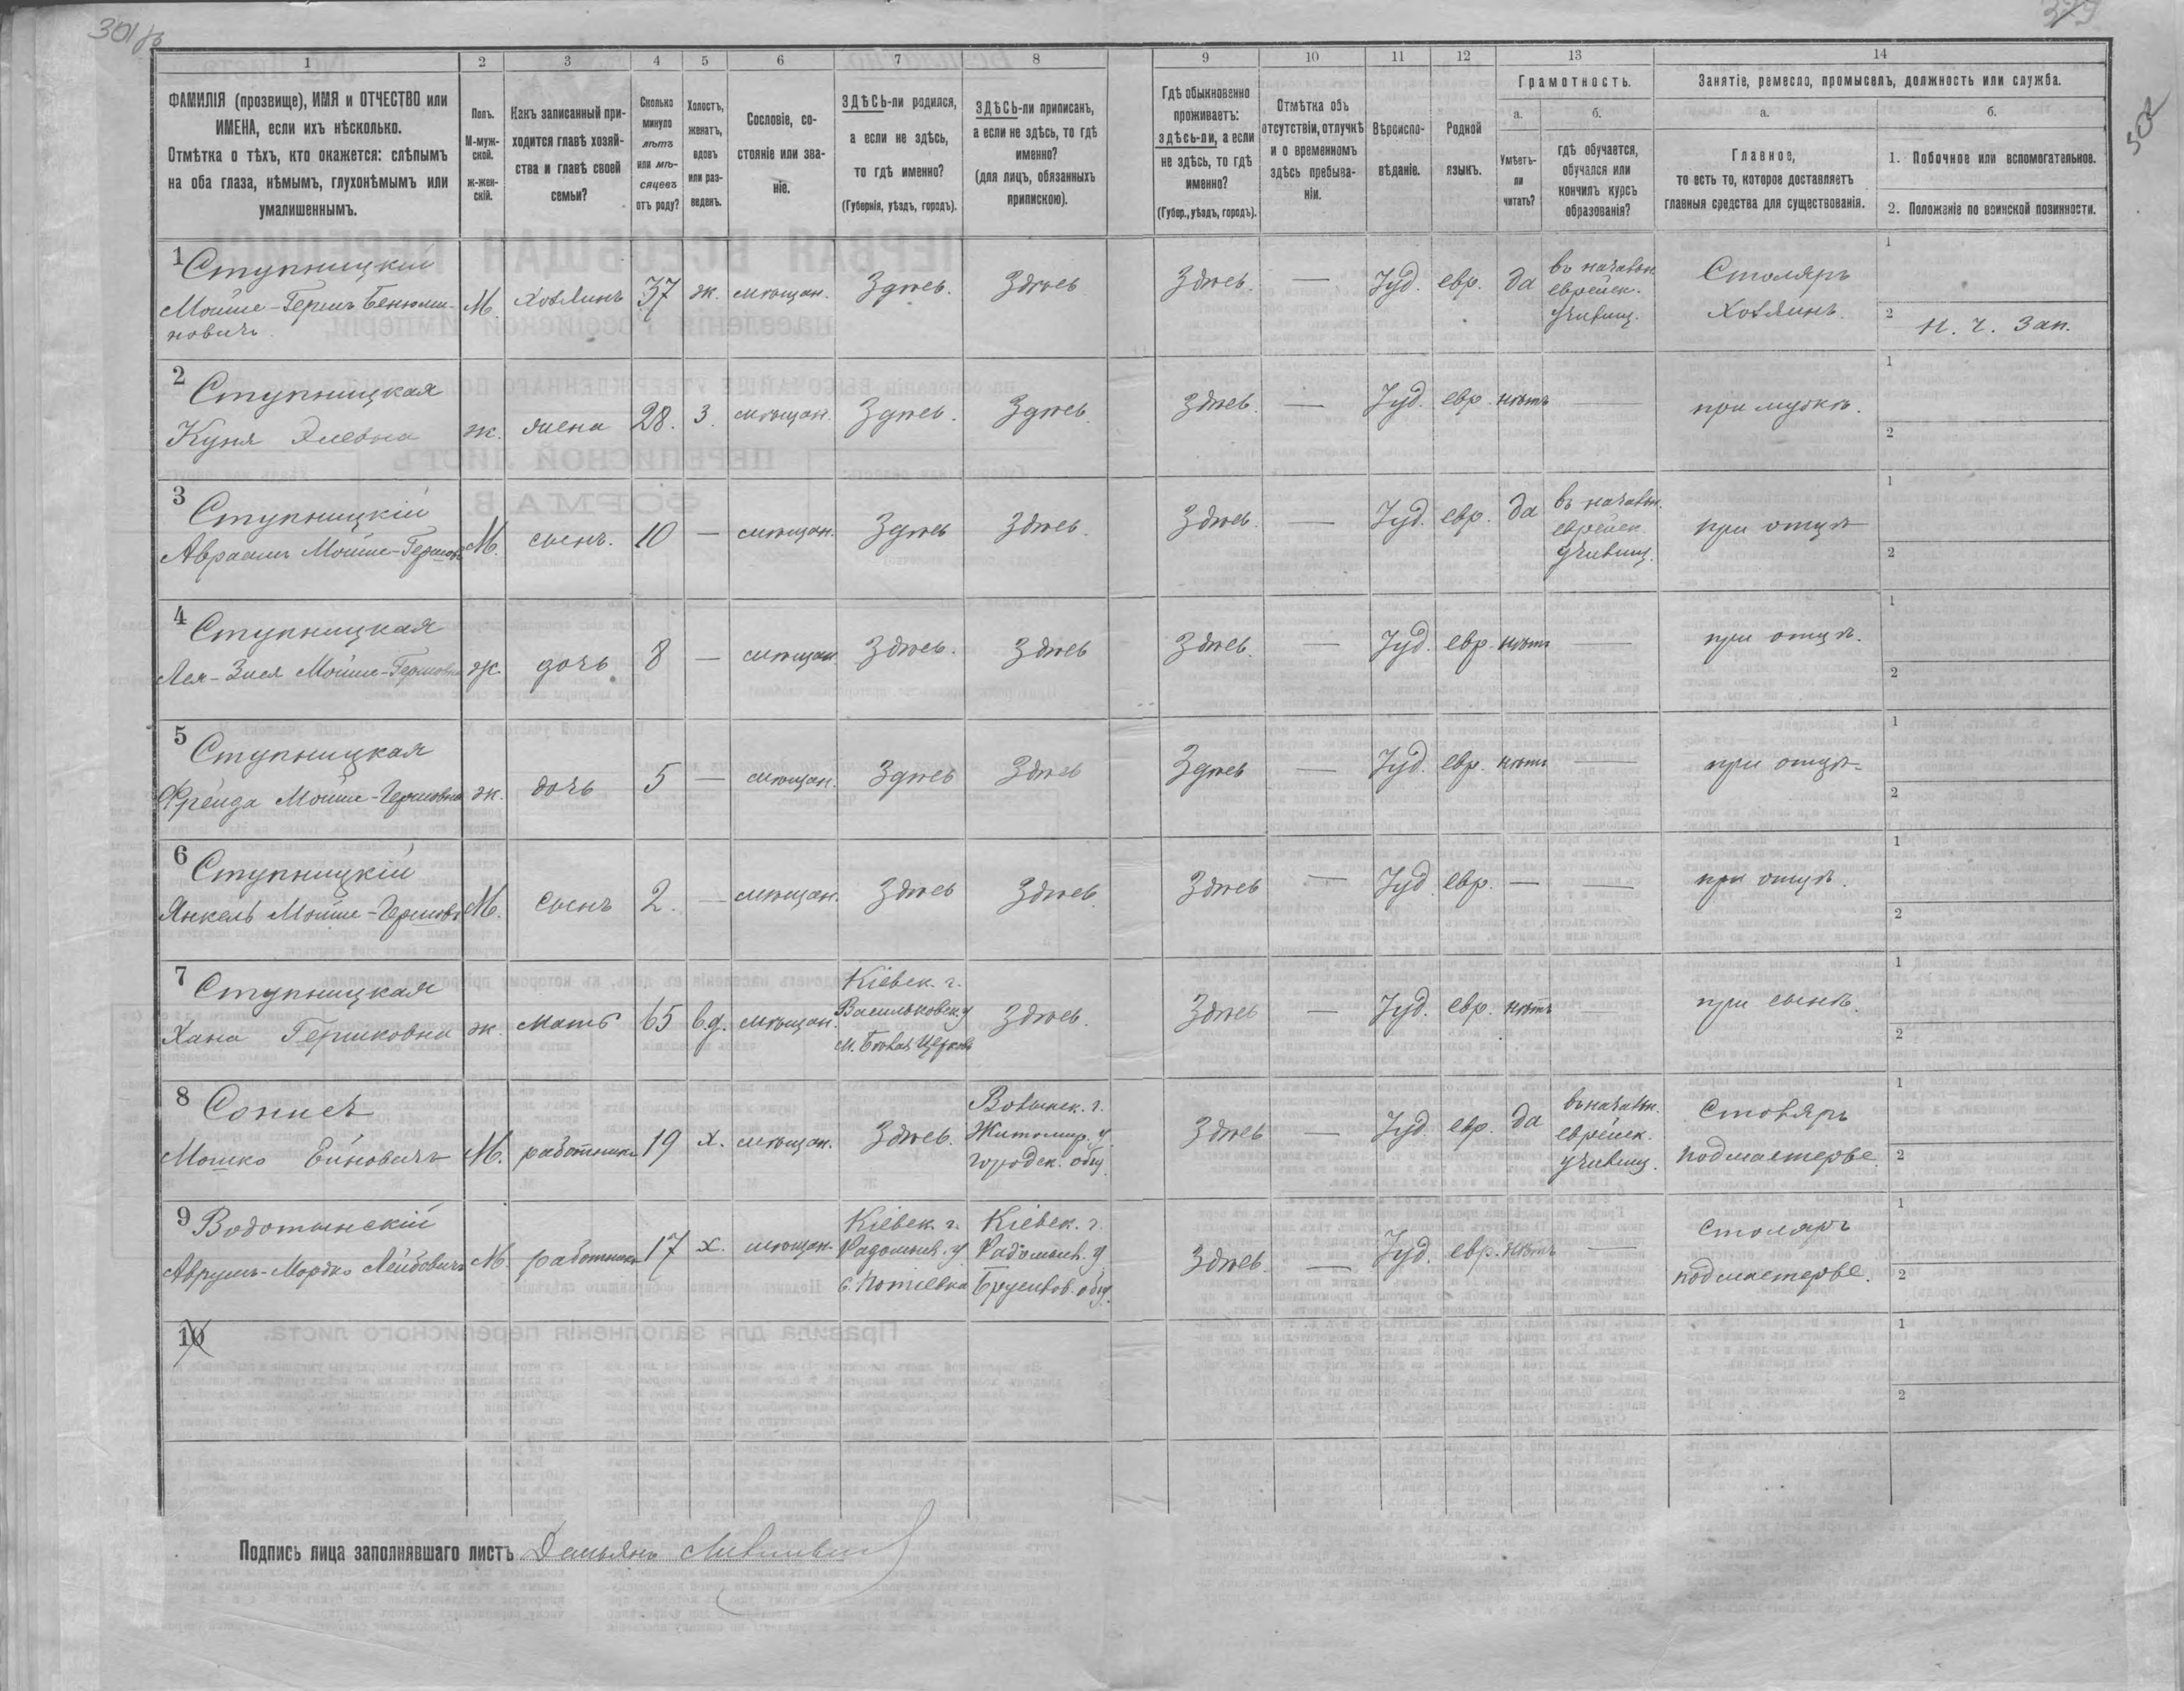 301 об
1 2 3 4 5 6 7 8 9 10 11 12 13 14
ФАМИЛІЯ (прозвище), ИМЯ и ОТЧЕСТВО или
ИМЕНА, если ихъ нѣсколько.
Отмѣтка о тѣхъ, кто окажется: слѣпымъ
на оба глаза, нѣмымъ, глухонѣмымъ или
умалишеннымъ.
Полъ.
М-муж-
ской.
ж-жен-
скій.
Какъ записанный при-
ходится главѣ хозяй-
ства и главѣ своей
семьи?
Сколько
минуло
лѣтъ
или мѣ-
сяцевъ
отъ роду?
Холостъ,
женатъ,
вдовъ
или раз-
веденъ.
Сословіе, со-
стояніе или зва-
ніе.
ЗДѢСЬ-ли родился,
а если не здѣсь,
то гдѣ именно?
(Губернія, уѣздъ, городъ).
ЗДѢСЬ-ли приписанъ,
а если не здѣсь, то гдѣ
именно?
(для лицъ, обязанныхъ
припискою).
Гдѣ обыкновенно
проживаетъ:
здѣсь-ли, а если
не здѣсь, то гдѣ
именно?
(Губер., уѣздъ, городъ).
Отмѣтка объ
отсутствіи, отлучкѣ
и о временномъ
здѣсь пребыва-
ніи.
Вѣроиспо-
вѣданіе.
Родной
языкъ.
Грамотность.
а.
Умѣетъ-
ли
читать?
б.
гдѣ обучается,
обучался или
кончилъ курсъ
образованія?
Занятіе, ремесло, промыселъ, должность или служба.
а.
Главное,
то есть то, которое доставляетъ
главныя средства для существованія.
б.
1. Побочное или вспомогательное.
2. Положеніе по воинской повинности.
1 Ступницкій
Мойше-Гершъ Бенюми-
новичъ
М. Хозяинъ 37 ж. мѣщан. Здѣсь. Здѣсь
Здѣсь. — Іуд. евр. да
въ начальн.
еврейск.
училищ.
Столяръ
Хозяинъ.
1
2 н. ч. Зап.
2 Ступницкая
Куня
ж. жена 28. З. мѣщан. Здѣсь. Здѣсь
Здѣсь. — Іуд. евр. нѣтъ — при мужѣ.
1
2
3 Ступницкій
Авраамъ Мойше-Гершов
М. сынъ. 10 — мѣщан. Здѣсь Здѣсь.
Здѣсь. — Іуд. евр. да
въ начальн.
еврейск.
училищ.
при отцѣ
1
2
4 Ступницкая
Лея- Мойше-Гершовна
ж. дочь 8 — мѣщан Здѣсь. Здѣсь
Здѣсь. — Іуд. евр. нѣтъ — при отцѣ.
1
2
5 Ступницкая
Фрейда Мойше-Гершовна
ж. дочь 5 — мѣщан. Здѣсь Здѣсь
Здѣсь — Іуд. евр. нѣтъ — при отцѣ.
1
2
6 Ступницкій
Янкель Мойше-Гершов
М. Сынъ 2. — мѣщан. Здѣсь Здѣсь.
Здѣсь — Іуд. евр. — — при отцѣ.
1
2
7 Ступницкая
Хана Гершковна
ж. мать 65 вд. мѣщан.
Кіевск. г.
Васильковск. у
м. Бѣлая Церковь
Здѣсь.
Здѣсь — Іуд. евр. нѣтъ — при сынѣ.
1
2
8 Сонисъ
Мошко
М. работникъ 19 х. мѣщан. Здѣсь.
Волынск. г.
Житомир. у.
городск. общ.
Здѣсь — Іуд. евр. да
въ начальн.
еврейск.
училищ.
Столяръ
подмастерье.
1
2
9 Водотынскій
Аврумъ-Мордко Лейбовичъ
М. работникъ 17 х. мѣщан.
Кіевск. г.
Радомыс. у
с. Потіевка
Кіевск. г.
Радомыс. у
Брусилов. общ.
Здѣсь. — Іуд. евр. нѣтъ —
Столяръ
подмастерье.
1
2
10
1
2
Подпись лица заполнявшаго листъ Демьянъ